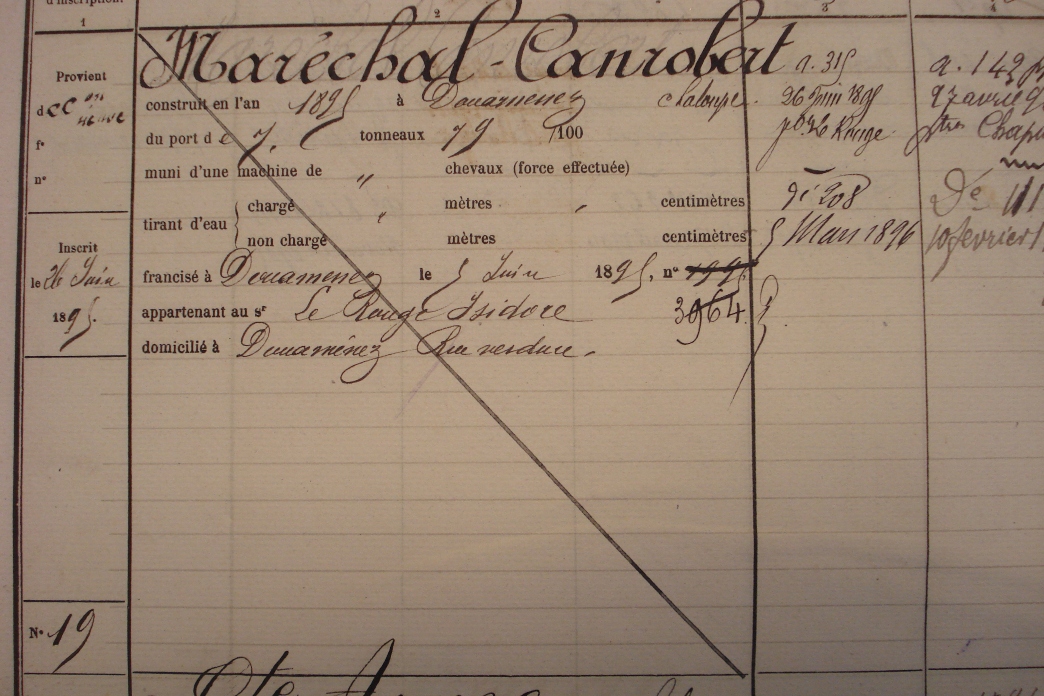 d'inscription.
1
2
3
Maréchal-Canrobert
Provient
construit en l'an 1895 à Douarnenez chaloupe.
du port de 7. tonneaux 79 /100
f°
n°
muni d'une machine de " chevaux (force effectuée)
tirant d'eau { chargé " mètres " centimètres
non chargé mètres centimètres
Inscrit
le 26 Juin
1895.
francisé à Douarnenez le 5 Juin 1895, n°
appartenant au sr Le Rouge Isidore 3964
domicilié à Douarnénez Rue
N° 19
a. 315
26 Juin 1895
Rouge
Dé 208
5 Mars 1896
a. 142
27 avril
Dé 111
10 février